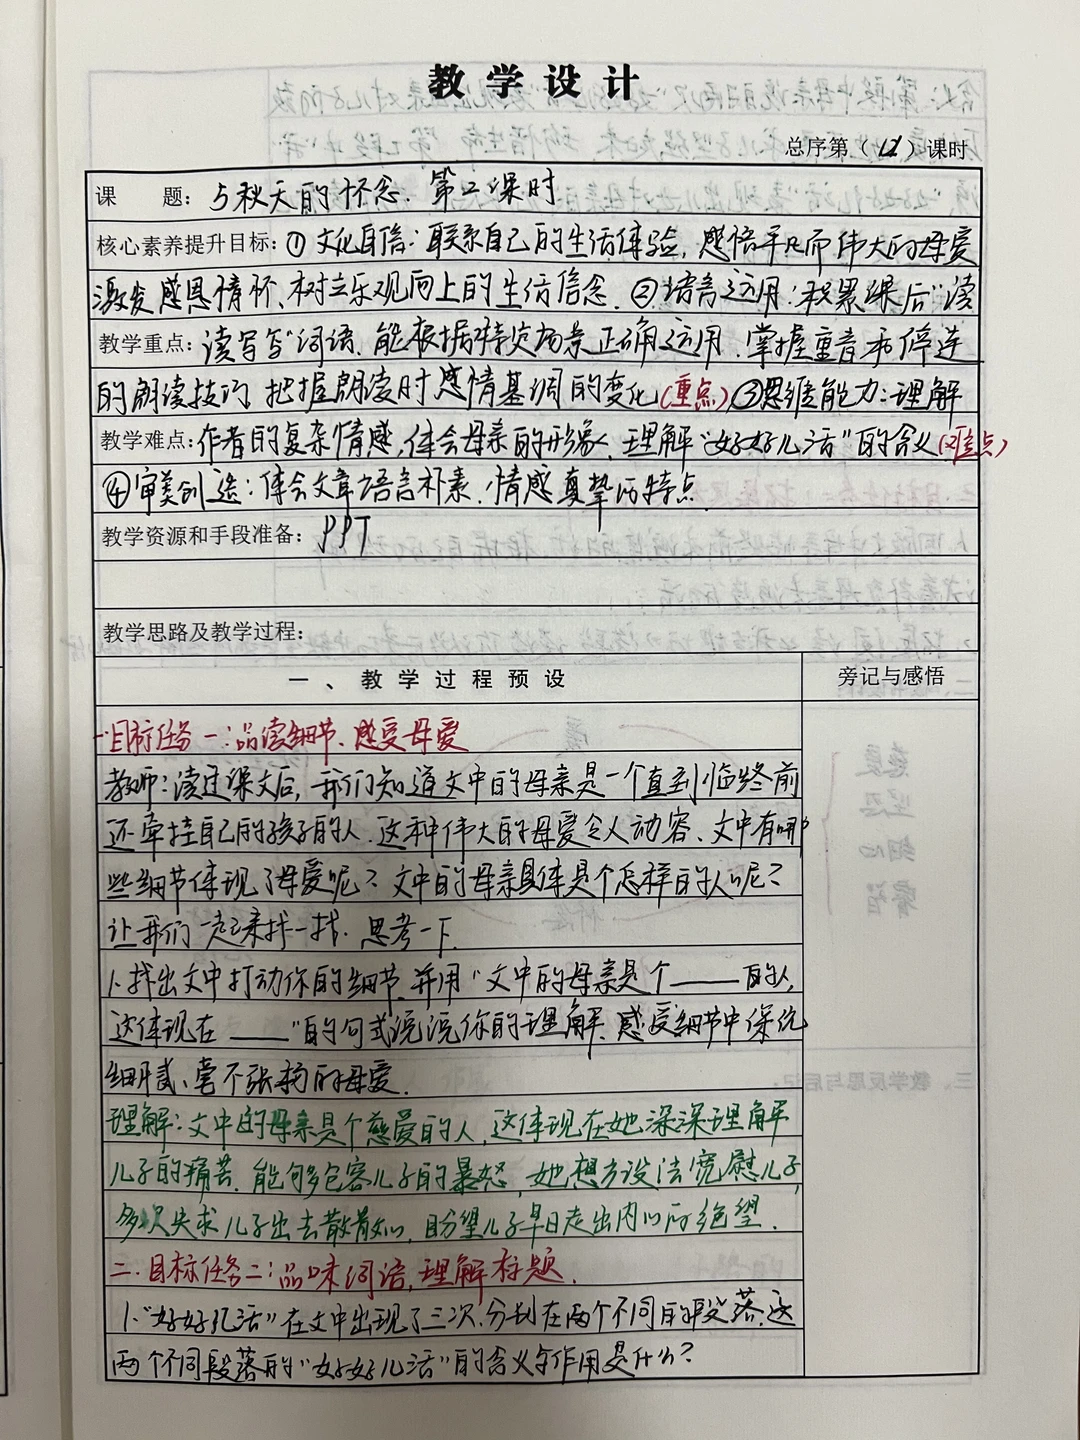 教学设计
总序第（12）课时
课 题：与秋天的怀念.第2课时
核心素养提升目标：①文化自信：联系自己的生活体验，感悟平凡而伟大的母爱
激发感恩情怀、树立乐观向上的生活信念.②语言运用：积累课后“读
教学重点：读写写”词语.能根据特定场景正确运用.掌握重音和停连
的朗读技巧 把握朗读时感情基调的变化（重点）③思维能力：理解
教学难点：作者的复杂情感，体会母亲的形象、理解“好好儿活”的含义（难点）
④审美创造：体会文章语言朴素、情感真挚的特点.
教学资源和手段准备：PPT
教学思路及教学过程：
一、教学过程预设 旁记与感悟
一.目标任务一：品读细节、感受母爱
教师：读过课文后，我们知道文中的母亲是一个直到临终前
还牵挂自己的孩子的人.这种伟大的母爱令人动容、文中有哪
些细节体现了母爱呢？文中的母亲具体是个怎样的人呢？
让我们一起来找一找.思考一下.
1.找出文中打动你的细节.并用“文中的母亲是个____的人，
这体现在____”的句式说说你的理解.感受细节中深沉
细腻、毫不张扬的母爱.
理解：文中的母亲是个慈爱的人，这体现在她深深理解
儿子的痛苦.能够包容儿子的暴怒，她想方设法宽慰儿子，
多次央求儿子出去散散心，盼望儿子早日走出内心的绝望.
二.目标任务二：品味词语，理解标题.
1.“好好儿活”在文中出现了三次.分别在两个不同的段落.这
两个不同段落的“好好儿活”的含义与作用是什么？